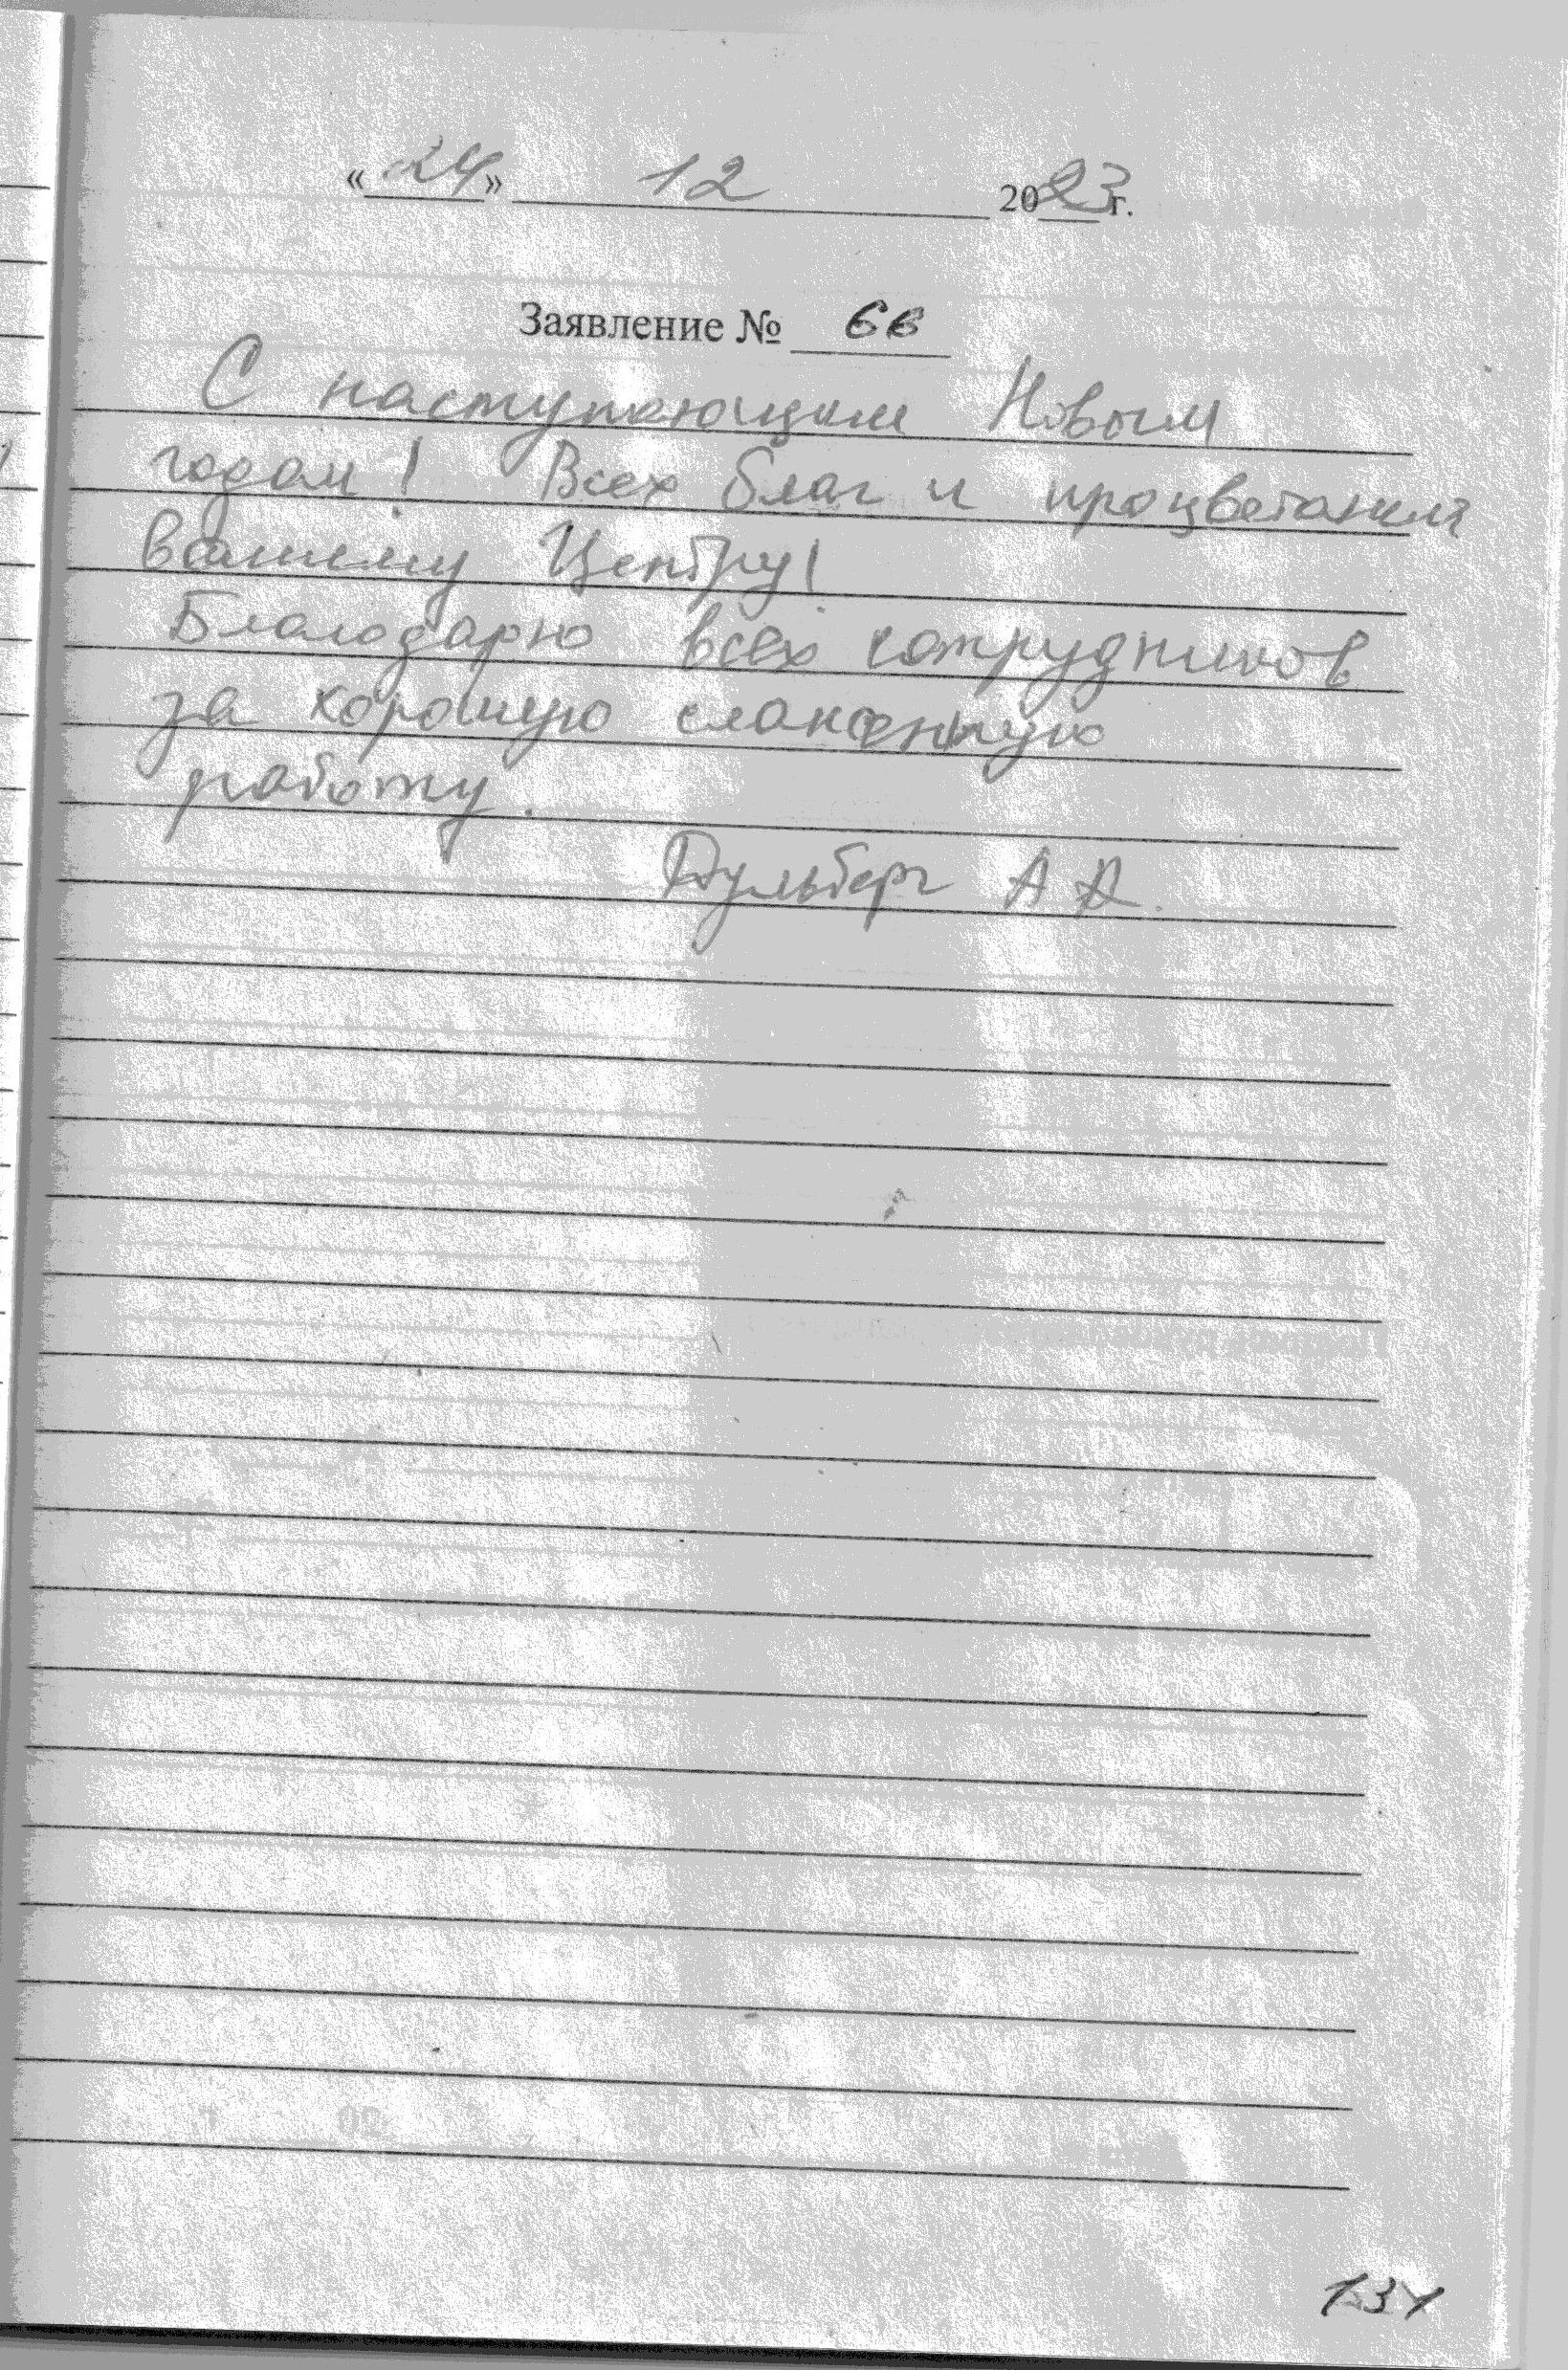 «24» 12 2023 г.
Заявление № 66
С наступающим Новым
годом! Всех благ и процветания
вашему Центру!
Благодарю всех сотрудников
за хорошую слаженную
работу.
Дульберг А А.
131